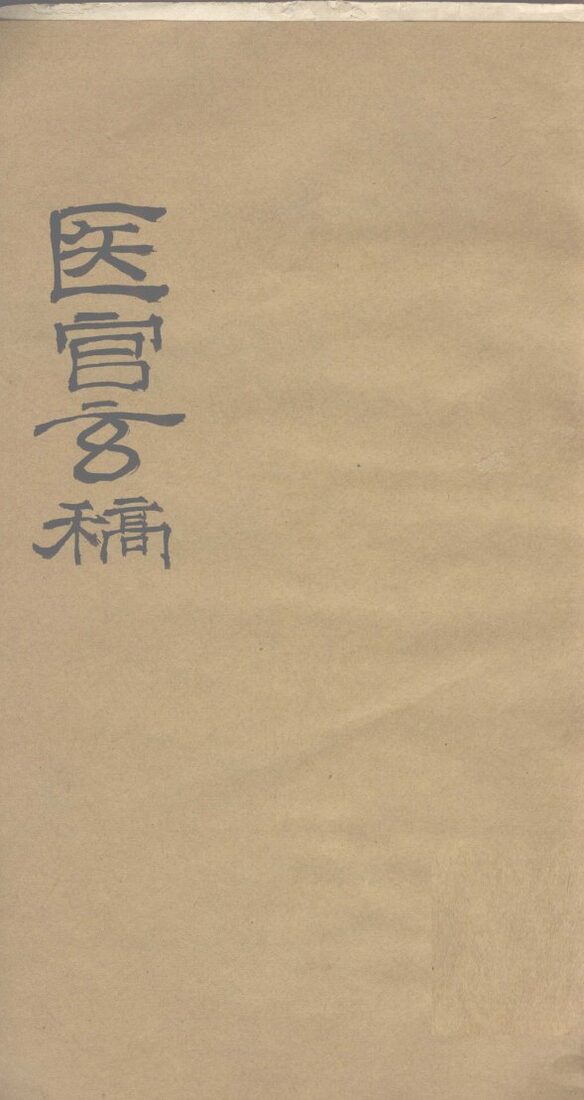 医官玄稿